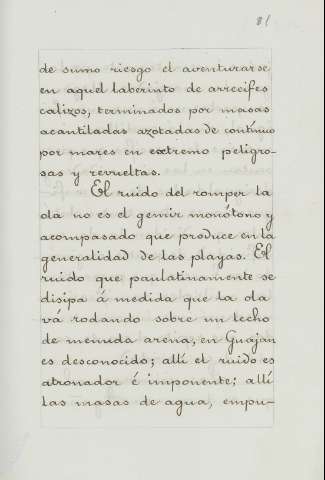 81
de sumo riesgo el aventurarse
en aquel laberinto de arrecifes
calizos, terminados por masas
acantiladas azotadas de contínuo
por mares en extremo peligro-
sas y revueltas.
El ruido del romper la
ola no es el gemir monótono y
acompasado que produce en la
generalidad de las playas. El
ruido que paulatinamente se
disipa á medida que la ola
vá rodando sobre un lecho
de menuda arena, en Guajan
es desconocido; allí el ruido es
atronador é imponente; allí
las masas de agua, empu-